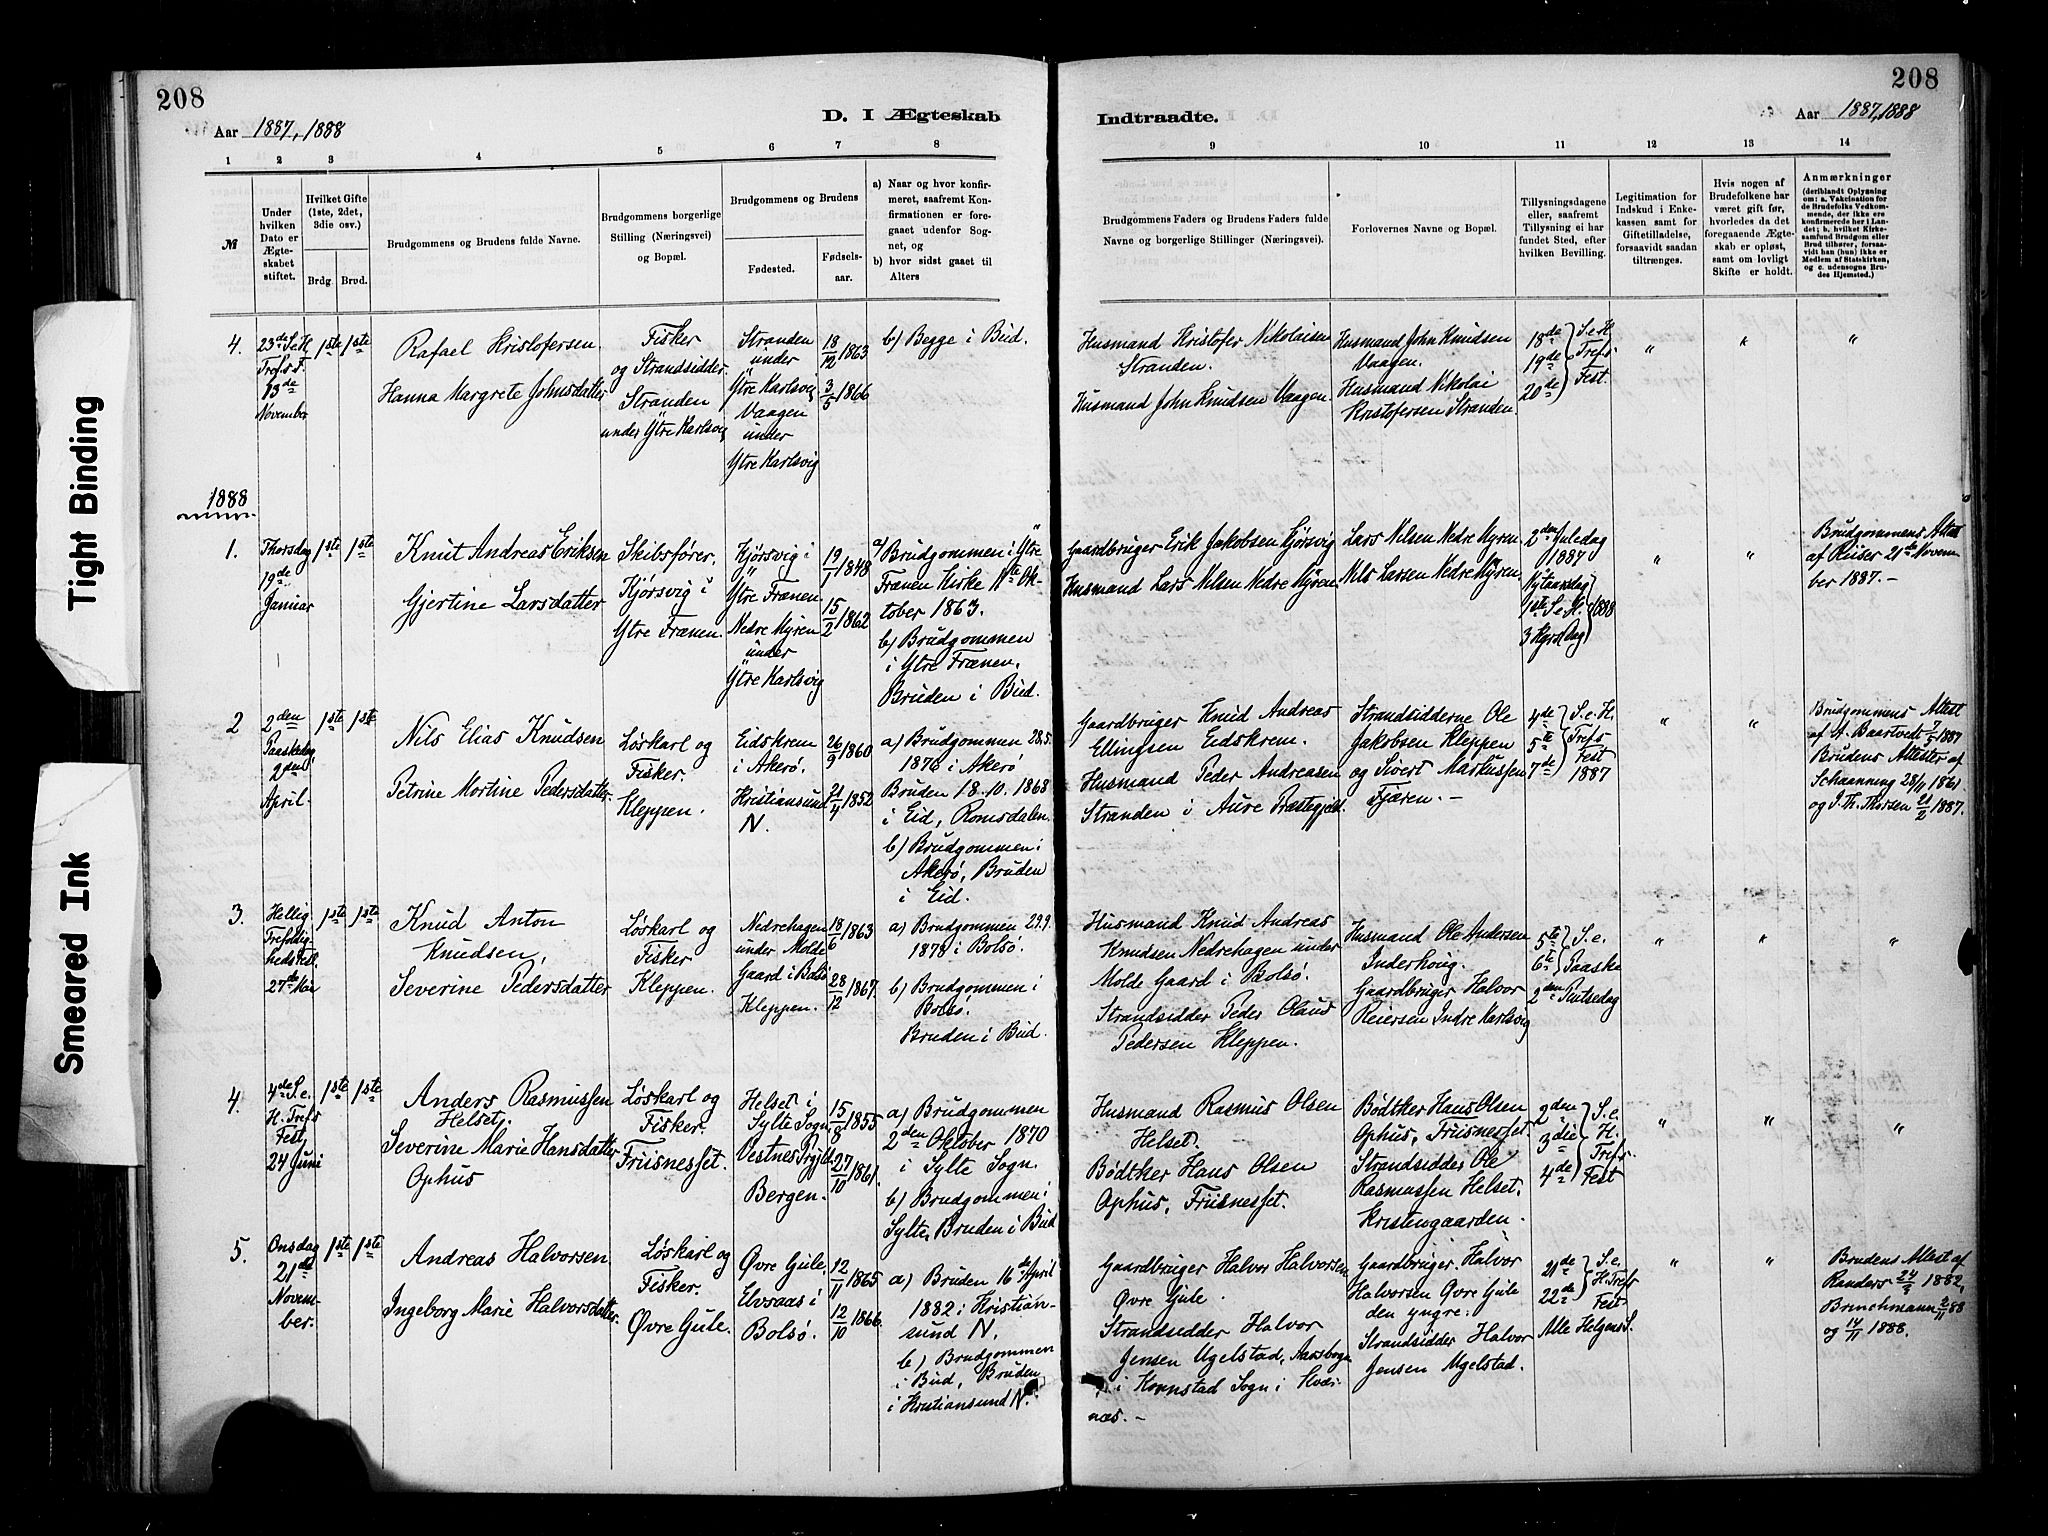 208
208
Aar 1887, 1888
D. I Ægteskab
Indtraadte.
Aar 1887, 1888
1 2 3 4 5 6 7 8
9 10 11 12 13 14
№
Under hvilken Dato er Ægteskabet stiftet.
Hvilket Gifte (1ste, 2det, 3die osv.)
Brdg. Brud.
Brudgommens og Brudens fulde Navne.
Brudgommens borgerlige Stilling (Næringsvei) og Bopæl.
Brudgommens og Brudens
Fødested.
Fødsels-aar.
a) Naar og hvor konfirmeret, saafremt Konfirmationen er foregaaet udenfor Sognet, og
b) hvor sidst gaaet til Alters
Brudgommens Faders og Brudens Faders fulde Navne og borgerlige Stillinger (Næringsvei).
Forlovernes Navne og Bopæl.
Tillysningsdagene eller, saafremt Tillysning ei har fundet Sted, efter hvilken Bevilling.
Legitimation for Indskud i Enkekassen samt for Giftetilladelse, forsaavidt saadan tiltrænges.
Hvis nogen af Brudefolkene har været gift før, hvorledes da det foregaaende Ægteskab er opløst, samt om lovligt Skifte er holdt.
Anmærkninger
(deriblandt Oplysning om: a. Vakcination for de Brudefolks Vedkommende, der ikke ere konfirmerede her i Landet; b. hvilket Kirkesamfund Brudgom eller Brud tilhører, forsaavidt han (hun) ikke er Medlem af Statskirken, og c. udensogns Brudes Hjemsted.)
4.
23de S.e.H. Trefs.f. 13de November
1ste 1ste
Rafael Kristofersen
Hanna Margrete Johnsdatter
Fisker og Strandsidder. Stranden under Ytre Karlsvig
Stranden under Ytre Karlsvig
Vaagen under Ytre Karlsvig
18/12 1863
3/5 1866
b) Begge i Bud.
Husmand Kristofer Nikolaisen Stranden.
Husmand John Knudsen Vaagen.
Husmand John Knudsen Vaagen.
Husmand Nikolai Kristofersen Stranden.
18de 19de 20de S.e.H. Trefs. Fest.
" " "
1888
1.
Thorsdag 19de Januar
1ste 1ste
Knut Andreas Eriksen
Gjertine Larsdatter
Skibsfører. Kjørsvig i Ytre Frænen.
Kjørsvig i Ytre Frænen.
Nedre Myren under Ytre Karlsvig
19/1 1848
15/2 1862
a) Brudgommen i Ytre Frænen Kirke 11te Oktober 1863.
b) Brudgommen i Ytre Frænen. Bruden i Bud.
Gaardbruger Erik Jakobsen Kjørsvig
Husmand Lars Nilsen Nedre Myren.
Lars Nilsen Nedre Myren.
Nils Larsen Nedre Myren.
2den Juledag 1887
Nytaarsdag 1ste S.e.N. 3 Kgrs Dag 1888
" "
Brudgommens Attest af Riiser 21de November 1887.-
2
2den Paaskedag 2den April.
1ste 1ste
Nils Elias Knudsen
Petrine Mortine Pedersdatter.
Løskarl og Fisker. Kleppen.
Eidskrem i Akerø.
Kristiansund N.
26/9 1860
21/4 1852
a) Brudgommen 28.5. 1876 i Akerø
Bruden 18.10.1868 i Eid, Romsdalen.
b) Brudgommen i Akerø, Bruden i Eid.
Gaardbruger Knud Andreas Ellingsen Eidskrem.
Husmand Peder Andreasen Stranden i Aure Præstegjeld.
Strandsidderne Ole Jakobsen Kleppen og Sivert Markussen Fjæren.-
4de 5te 7de S.e.H. Trefs Fest 1887
" "
Brudgommens Attest af A. Baartvedt 7/5 1887
Brudens Attester af Schaanning 28/11 1861
og J. Th. Thorsen 21/2 1887.
3.
Hellig Trefoldighedsfest. 27de Mai
1ste 1ste
Knud Anton Knudsen,
Severine Pedersdatter
Løskarl og Fisker Kleppen.
Nedrehagen under Molde Gaard i Bolsø
Kleppen.
18/6 1863
28/12 1867.
a) Brudgommen 29.9. 1878 i Bolsø.
b) Brudgommen i Bolsø. Bruden i Bud.
Husmand Knud Andreas Knudsen Nedrehagen under Molde Gaard i Bolsø.
Strandsidder Peder Olaus Pedersen Kleppen.
Husmand Ole Andersen Inderhoug.
Gaardbruger Halvor Reiersen Indre Karlsvig
5te 6te S.e. Paaske
2den Pintsedag
" " "
4.
4de S.e. H. Trefs Fest, 24 Juni
1ste 1ste
Anders Rasmussen Helset,
Severine Marie Hansdatter Ophus
Løskarl og Fisker. Friisnesset.
Helset i Sylte Sogn Vestnes Prgjld
Bergen.
15/8 1855
27/10 1861.
a) Brudgommen 2den Oktober 1870 i Sylte Sogn.
b) Brudgommen i Sylte, Bruden i Bud
Husmand Rasmus Olsen Helset.
Bødtker Hans Olsen Ophus, Friisnesset.
Bødtker Hans Olsen Ophus, Friisnesset.
Strandsidder Ole Rasmussen Helset, Kristengaarden.
2den 3die 4de S.e. H. Trefs. Fest
" " "
5.
Onsdag 21de November.
1ste 1ste
Andreas Halvorsen
Ingeborg Marie Halvorsdatter.
Løskarl og Fisker. Øvre Gule.
Øvre Gule,
Elvsaas i Bolsø.
12/11 1865
12/10 1866.
a) Bruden 16de April 1882 i Kristiansund N.
b) Brudgommen i Bud, Bruden i Kristiansund N.
Gaardbruger Halvor Halvorsen Øvre Gule.
Strandsidder Halvor Jensen Ugelstad, Aarsbogen i Kornstad Sogn i Kværnæs.-
Gaardbruger Halvor Halvorsen Øvre Gule den yngre.
Strandsidder Halvor Jensen Ugelstad.
21de 22de S.e. H. Trefs Fest
Alle Helgens S.
" "
Brudens Attest af Randers 24/5 1882,
Brinchmann 2/11 88
og 14/11 1888.
Tight Binding
Smeared Ink